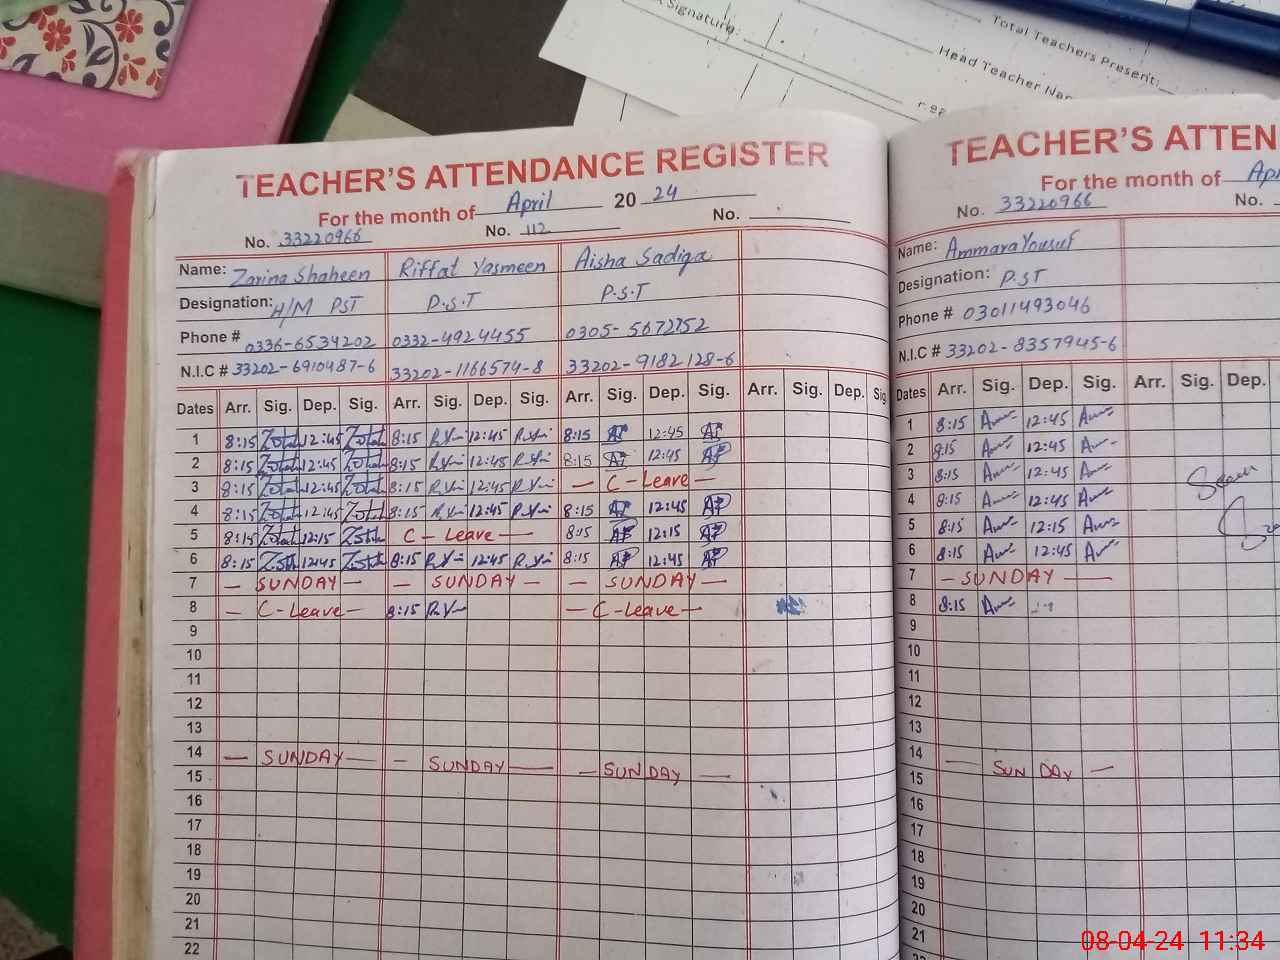 Signature:
Total Teachers Present:
Head Teacher Nar
TEACHER'S ATTENDANCE REGISTER
For the month of April 2024
No. 33220966 No. 112 No.
Name: Zarina Shaheen Riffat Yasmeen Aisha Sadiqa
Designation: H/M PST P.S.T P.S.T
Phone # 0336-6534202 0332-4924455 0305-5672752
N.I.C # 33202-6910487-6 33202-1166574-8 33202-9182128-6
Dates Arr. Sig. Dep. Sig. Arr. Sig. Dep. Sig. Arr. Sig. Dep. Sig. Arr. Sig. Dep. Sig
1 8:15 12:45 8:15 12:45 8:15 12:45
2 8:15 12:45 8:15 12:45 8:15 12:45
3 8:15 12:45 8:15 12:45 — C-Leave —
4 8:15 12:45 8:15 12:45 8:15 12:45
5 8:15 12:15 C-Leave — 8:15 12:15
6 8:15 12:45 8:15 12:45 8:15 12:45
7 — SUNDAY — — SUNDAY — — SUNDAY —
8 — C-Leave — 8:15 — C-Leave —
9
10
11
12
13
14 — SUNDAY — — SUNDAY — — SUNDAY —
15
16
17
18
19
20
21
22
TEACHER'S ATTEN
For the month of Apr
No. 33220966 No.
Name: Ammara Yousuf
Designation: P.S.T
Phone # 03011493046
N.I.C # 33202-8357945-6
Dates Arr. Sig. Dep. Sig. Arr. Sig. Dep.
1 8:15 12:45
2 8:15 12:45
3 8:15 12:45
4 8:15 12:45
5 8:15 12:15
6 8:15 12:45
7 — SUNDAY —
8 8:15
9
10
11
12
13
14 — SUNDAY —
15
16
17
18
19
20
21
08-04-24 11:34